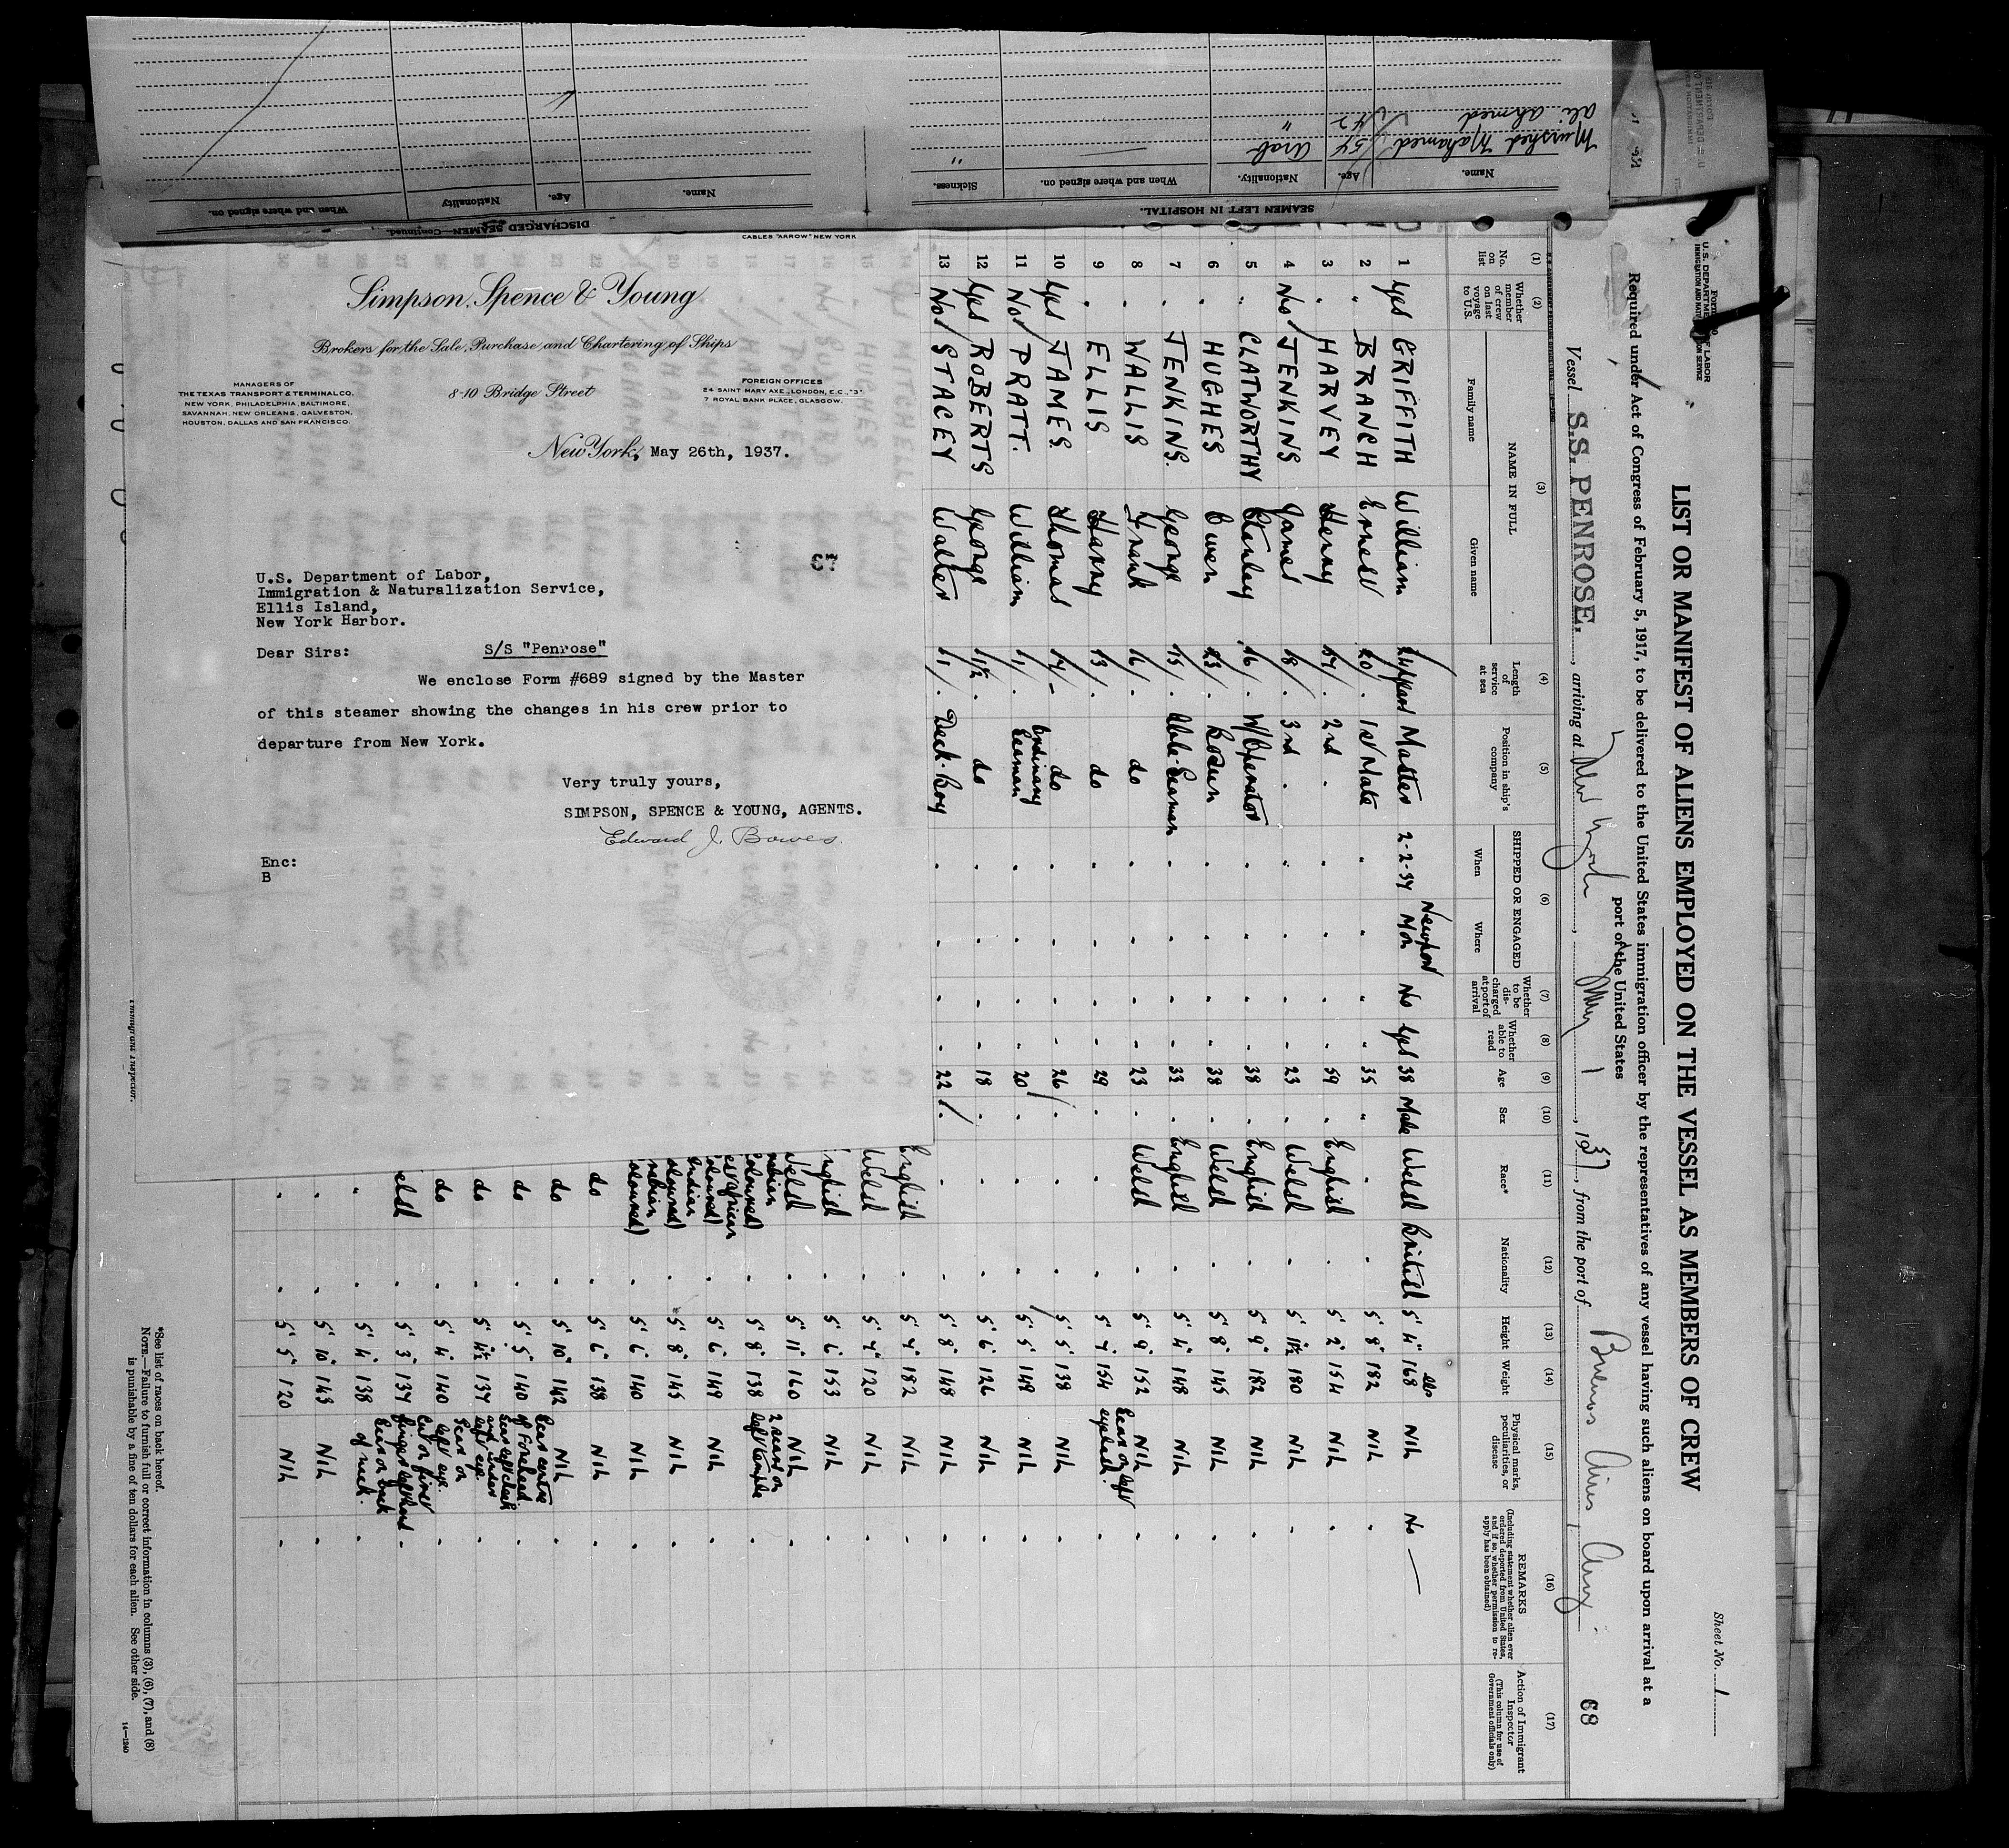 CABLES "ARROW" NEW YORK
Simpson, Spence & Young
Brokers for the Sale, Purchase and Chartering of Ships
MANAGERS OF
THE TEXAS TRANSPORT & TERMINAL CO.
NEW YORK, PHILADELPHIA, BALTIMORE,
SAVANNAH, NEW ORLEANS, GALVESTON,
HOUSTON, DALLAS AND SAN FRANCISCO.
8-10 Bridge Street
FOREIGN OFFICES
24 SAINT MARY AXE, LONDON, E.C., "3"
7 ROYAL BANK PLACE, GLASGOW.
New York, May 26th, 1937.
67
U.S. Department of Labor,
Immigration & Naturalization Service,
Ellis Island,
New York Harbor.
Dear Sirs: S/S "Penrose"
We enclose Form #689 signed by the Master
of this steamer showing the changes in his crew prior to
departure from New York.
Very truly yours,
SIMPSON, SPENCE & YOUNG, AGENTS.
Edward J. Bowes.
Enc:
B
Immigrant Inspector.
SEAMEN LEFT IN HOSPITAL.
Name. Age. Nationality. When and where signed on. Sickness.
Murshed Mahamed 54 Arab — "
Ali Ahmed 42 "
DISCHARGED SEAMEN—Continued.
Name. Age. Nationality When and where signed on.
Sheet No. 1
U.S. DEPARTMENT OF LABOR
LIST OR MANIFEST OF ALIENS EMPLOYED ON THE VESSEL AS MEMBERS OF CREW
Required under Act of Congress of February 5, 1917, to be delivered to the United States immigration officer by the representatives of any vessel having such aliens on board upon arrival at a
port of the United States
Vessel S.S. PENROSE., arriving at New York, May 1, 1937, from the port of Buenos Aires, Arg. 68
(1) (2) (3) (4) (5) (6) (7) (8) (9) (10) (11) (12) (13) (14) (15) (16) (17)
No. on list
Whether member of crew on last voyage to U.S.
NAME IN FULL
Family name Given name
Length of service at sea
Position in ship's company
SHIPPED OR ENGAGED
When Where
Whether to be discharged at port of arrival
Whether able to read
Age
Sex
Race*
Nationality
Height
Weight
Physical marks, peculiarities, or disease
REMARKS
(Including statement whether alien ever ordered deported from United States, and if so, whether permission to reapply has been obtained)
Action of Immigrant Inspector
(This column for use of Government officials only)
1 Yes GRIFFITH William Master 2-2-37 Newport Mon No Yes 38 Male Welsh British 5' 4" 168 Nil No —
2 " BRANCH Ernest 20 1st Mate " " " " 35 " " " 5' 8" 182 Nil "
3 " HARVEY Henry 2nd " " " " " 59 " English " 5' 2" 154 Nil "
4 No JENKINS James 18 3rd " " " " " 23 " Welsh " 180 Nil "
5 " CLATWORTHY Stanley 16 W/Operator " " " " 38 " English " 5' 9" 182 Nil "
6 " HUGHES Owen 23 Bosun " " " " 38 " Welsh " 5' 8" 145 Nil "
7 " JENKINS. George 15 Able Seaman " " " " 33 " English " 5' 4" 148 Nil "
8 " WALLIS Frank 16 do " " " " 23 " Welsh " 5' 9" 152 Nil "
9 " ELLIS Harry 13 do " " " " 29 " " " 5' 7" 154 Scar on left eyelid. "
10 Yes JAMES. Thomas do " " " " 26 " " " 5' 5" 138 Nil "
11 No PRATT. William 1 Ordinary Seaman " " " " 20 " " " 5' 5" 149 Nil "
12 Yes ROBERTS George 1½ do " " " " 18 " " " 5' 6" 126 Nil "
13 No STACEY Walter 1 Deck-Boy " " " " 22 " " " 5' 8" 148 Nil "
English " 5' 4" 182 Nil "
Welsh " 5' 7" 120 Nil "
nglish " 5' 6" 153 Nil "
Welsh " 5' 11" 160 Nil "
" 5' 8" 138 2 scars on left temple "
" 5' 6" 149 Nil "
" 5' 8" 145 Nil "
" 5' 6" 140 Nil "
do " 5' 6" 138 Nil "
do " 5' 10" 142 Nil "
do " 5' 5" 140 Scar centre of Forehead. "
do " 5' 4½ 137 Scar left cheek and under left eye. "
do " 5' 4" 140 Scar on left eye. "
elsh " 5' 3" 137 Cut on first finger left hand "
" " 5' 4" 138 Scar on back of neck. "
" " 5' 10" 143 Nil "
" " 5' 5" 120 Nil "
*See list of races on back hereof.
NOTE.—Failure to furnish full or correct information in columns (3), (6), (7), and (8)
is punishable by a fine of ten dollars for each alien. See other side.
14—1240